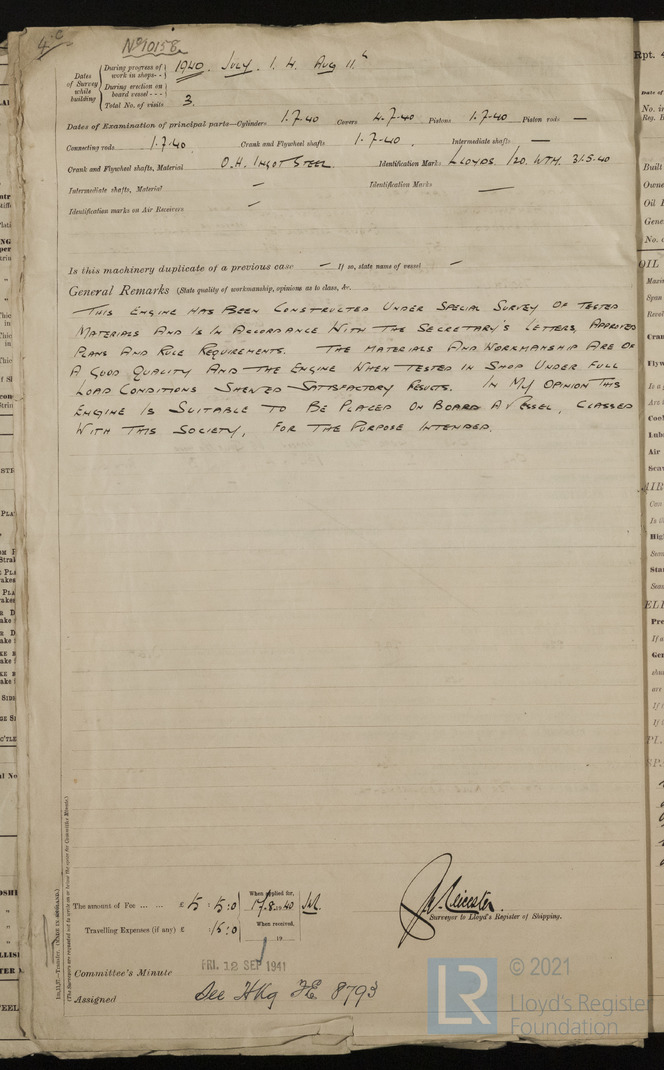 4.c
No 10158.
Dates of Survey while building
During progress of work in shops - - 1940. July. 1. 4. Aug 11.
During erection on board vessel - - -
Total No. of visits 3.
Dates of Examination of principal parts—Cylinders 1.7.40 Covers 4.7.40 Pistons 1.7.40 Piston rods —
Connecting rods 1.7.40 Crank and Flywheel shafts 1.7.40. Intermediate shafts —
Crank and Flywheel shafts, Material O.H. Ingot Steel. Identification Mark Lloyds 120. WTH. 31.5.40
Intermediate shafts, Material — Identification Marks —
Identification marks on Air Receivers —
Is this machinery duplicate of a previous case — If so, state name of vessel —
General Remarks (State quality of workmanship, opinions as to class, &c.
This Engine has been constructed under Special Survey of tested
materials and is in accordance with the Secretary's letters, approved
plans and rule requirements. The materials and workmanship are of
a good quality and the engine when tested in shop under full
load conditions shewed satisfactory results. In my opinion this
engine is suitable to be placed on board a vessel, classed
with this society, for the purpose intended.
The amount of Fee ... ... £ 15 : 15 : 0 When applied for, 17.8.1940
Travelling Expenses (if any) £ : 15 : 0 When received, 19
Surveyor to Lloyd's Register of Shipping.
FRI. 12 SEP 1941
Committee's Minute
Assigned See HKg FE 8793
LR © 2021
Lloyd's Register
Foundation